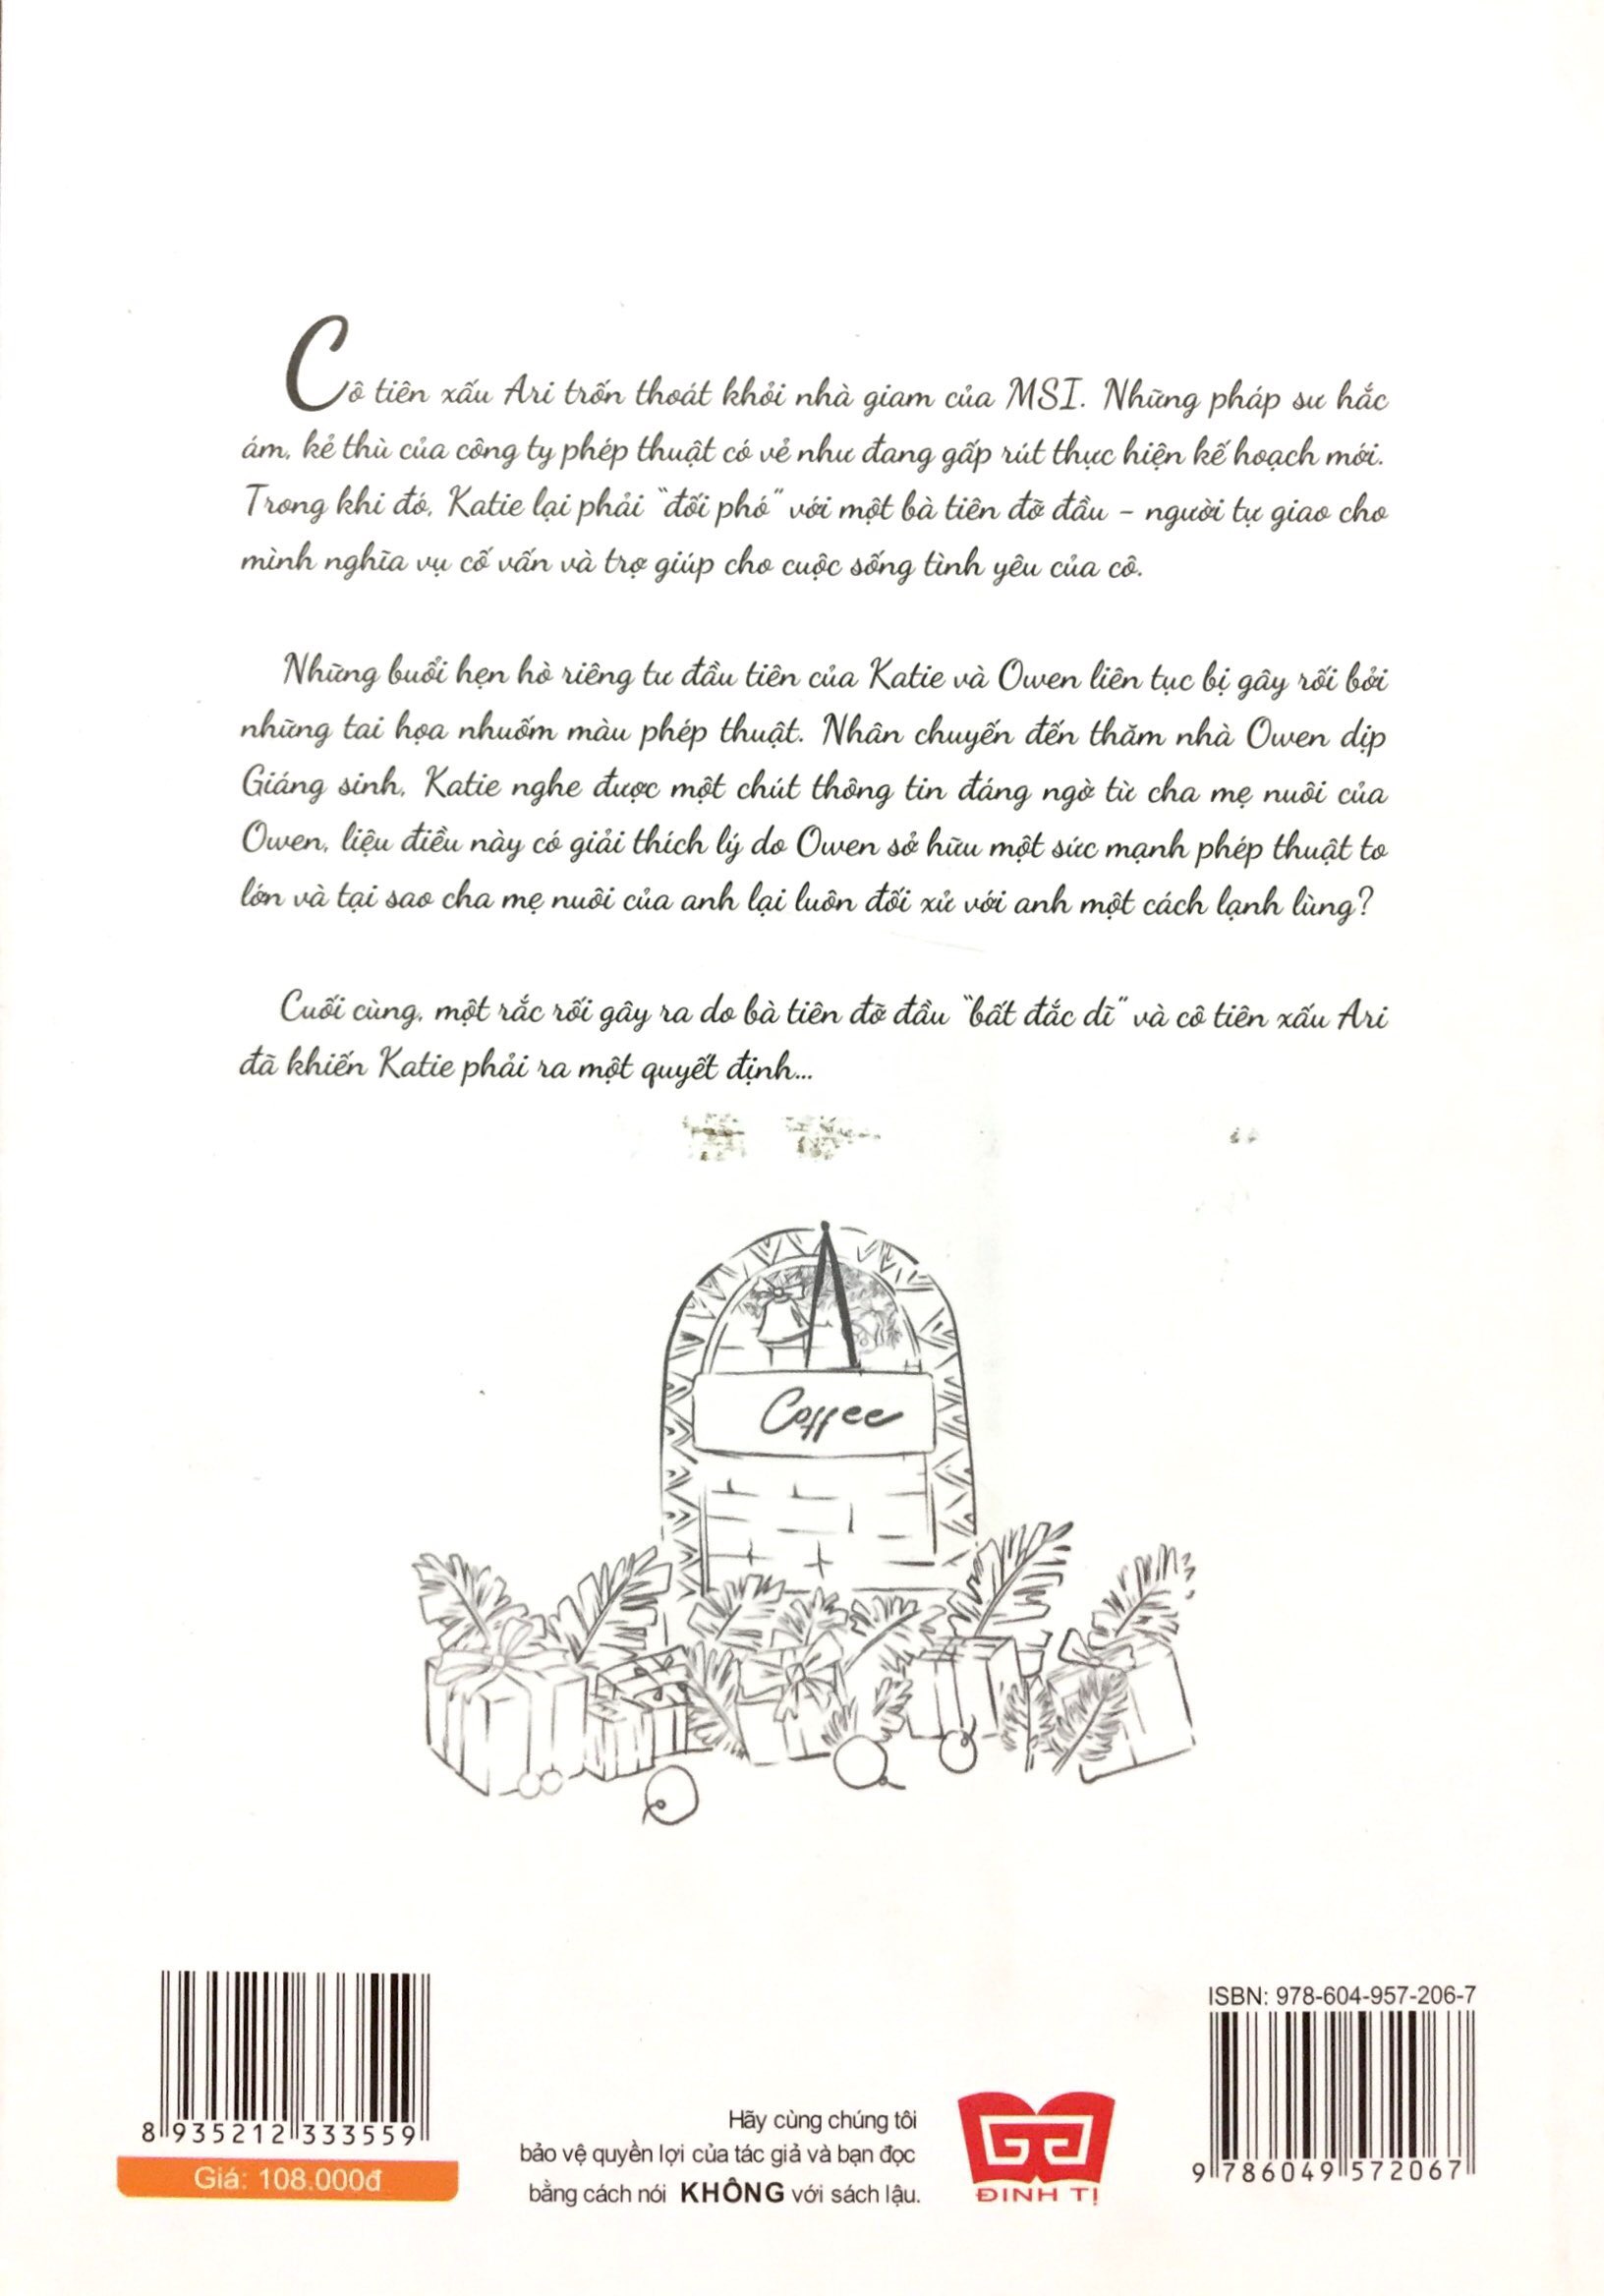 Cô tiên xấu Ari trốn thoát khỏi nhà giam của MSI. Những pháp sư hắc
ám, kẻ thù của công ty phép thuật có vẻ như đang gấp rút thực hiện kế hoạch mới.
Trong khi đó, Katie lại phải "đối phó" với một bà tiên đỡ đầu – người tự giao cho
mình nghĩa vụ cố vấn và trợ giúp cho cuộc sống tình yêu của cô.
Những buổi hẹn hò riêng tư đầu tiên của Katie và Owen liên tục bị gây rối bởi
những tai họa nhuốm màu phép thuật. Nhân chuyến đến thăm nhà Owen dịp
Giáng sinh, Katie nghe được một chút thông tin đáng ngờ từ cha mẹ nuôi của
Owen, liệu điều này có giải thích lý do Owen sở hữu một sức mạnh phép thuật to
lớn và tại sao cha mẹ nuôi của anh lại luôn đối xử với anh một cách lạnh lùng?
Cuối cùng, một rắc rối gây ra do bà tiên đỡ đầu "bất đắc dĩ" và cô tiên xấu Ari
đã khiến Katie phải ra một quyết định...
Coffee
8 935212 333559
Giá: 108.000đ
Hãy cùng chúng tôi
bảo vệ quyền lợi của tác giả và bạn đọc
bằng cách nói KHÔNG với sách lậu.
ĐINH TỊ
ISBN: 978-604-957-206-7
9 786049 572067